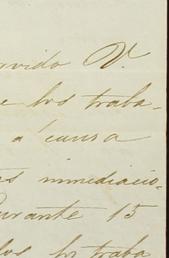 rvido V.
e los traba-
a causa
as inmediacio-
Durante 15
los los traba